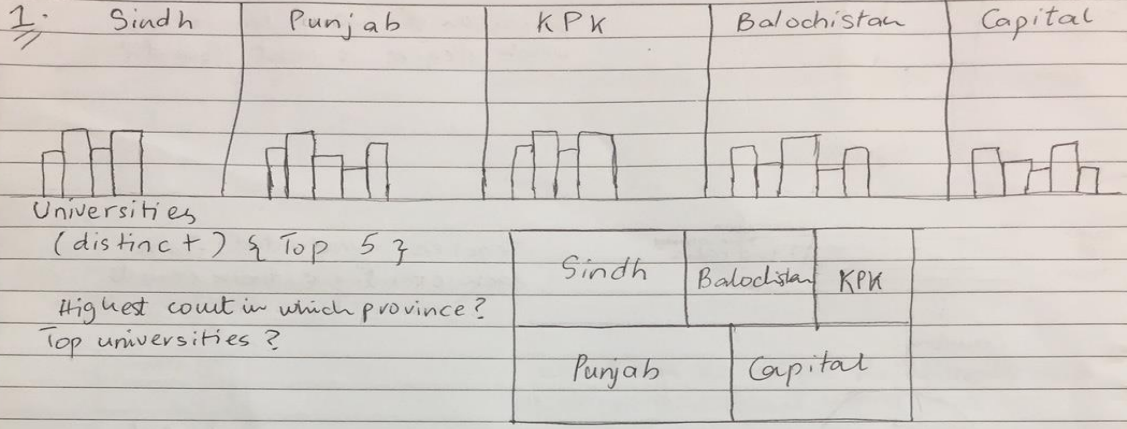 1.
Sindh Punjab KPK Balochistan Capital
Universities
(distinct) { Top 5 }
Highest count in which province?
Top universities?
Sindh Balochistan KPK
Punjab Capital